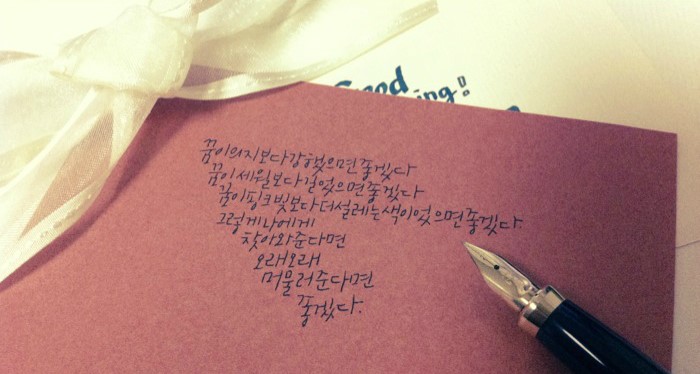 Good
ing!
꿈이의지보다강했으면좋겠다
꿈이세월보다길었으면좋겠다
꿈이핑크빛보다더설레는색이었으면좋겠다.
그렇게나에게
찾아와준다면
오래오래
머물러준다면
좋겠다.